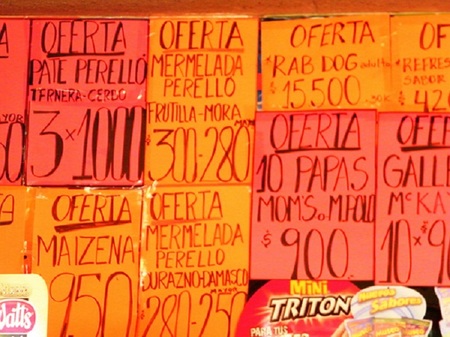 OFERTA
PATE PERELLÓ
TERNERA-CERDO
3x1000
OFERTA
MERMELADA
PERELLÓ
FRUTILLA-MORA
300-280
OFERTA
RAB DOG adulto
$15.500
OF
REFRES
SABOR
$420
YOR
50
OFERTA
10 PAPAS
MOMS o M.POLO
$900.
OFE
GALLE
McKA
10x90
OFERTA
MAIZENA
950
OFERTA
MERMELADA
PERELLO
DURAZNO-DAMASCO
280-250
Watts
Mini
TRITON
PARA TUS
Nuevos
Sabores